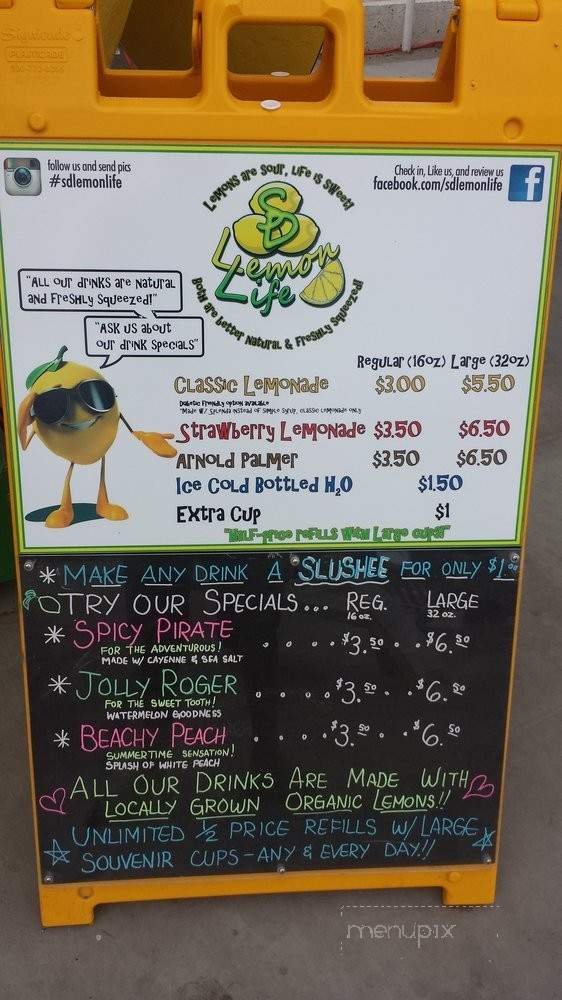 Signicade
PLASTICADE
follow us and send pics
#sdlemonlife
Check in, Like us, and review us
facebook.com/sdlemonlife
Lemons are Sour, Life is Sweet!
SD
Lemon
Life
Both are better Natural & Freshly Squeezed!
"ALL our drinks are Natural
and Freshly Squeezed!"
"Ask us about
our drink Specials"
Regular (16oz) Large (32oz)
Classic Lemonade $3.00 $5.50
Diabetic Friendly option available
*Made w/ Splenda instead of simple syrup, classic lemonade only
Strawberry Lemonade $3.50 $6.50
Arnold Palmer $3.50 $6.50
Ice Cold Bottled H2O $1.50
Extra Cup $1
"Half-price refills with Large cups!"
* MAKE ANY DRINK A SLUSHEE FOR ONLY $1.00
TRY OUR SPECIALS... REG. LARGE
16 oz. 32 oz.
* SPICY PIRATE . . . . . $3.50 . . $6.50
FOR THE ADVENTUROUS!
MADE W/ CAYENNE & SEA SALT
* JOLLY ROGER . . . . $3.50 . . $6.50
FOR THE SWEET TOOTH!
WATERMELON GOODNESS
* BEACHY PEACH . . . . $3.50 . . $6.50
SUMMERTIME SENSATION!
SPLASH OF WHITE PEACH
ALL OUR DRINKS ARE MADE WITH
LOCALLY GROWN ORGANIC LEMONS!!
UNLIMITED 1/2 PRICE REFILLS W/ LARGE
SOUVENIR CUPS - ANY & EVERY DAY!!
menupix